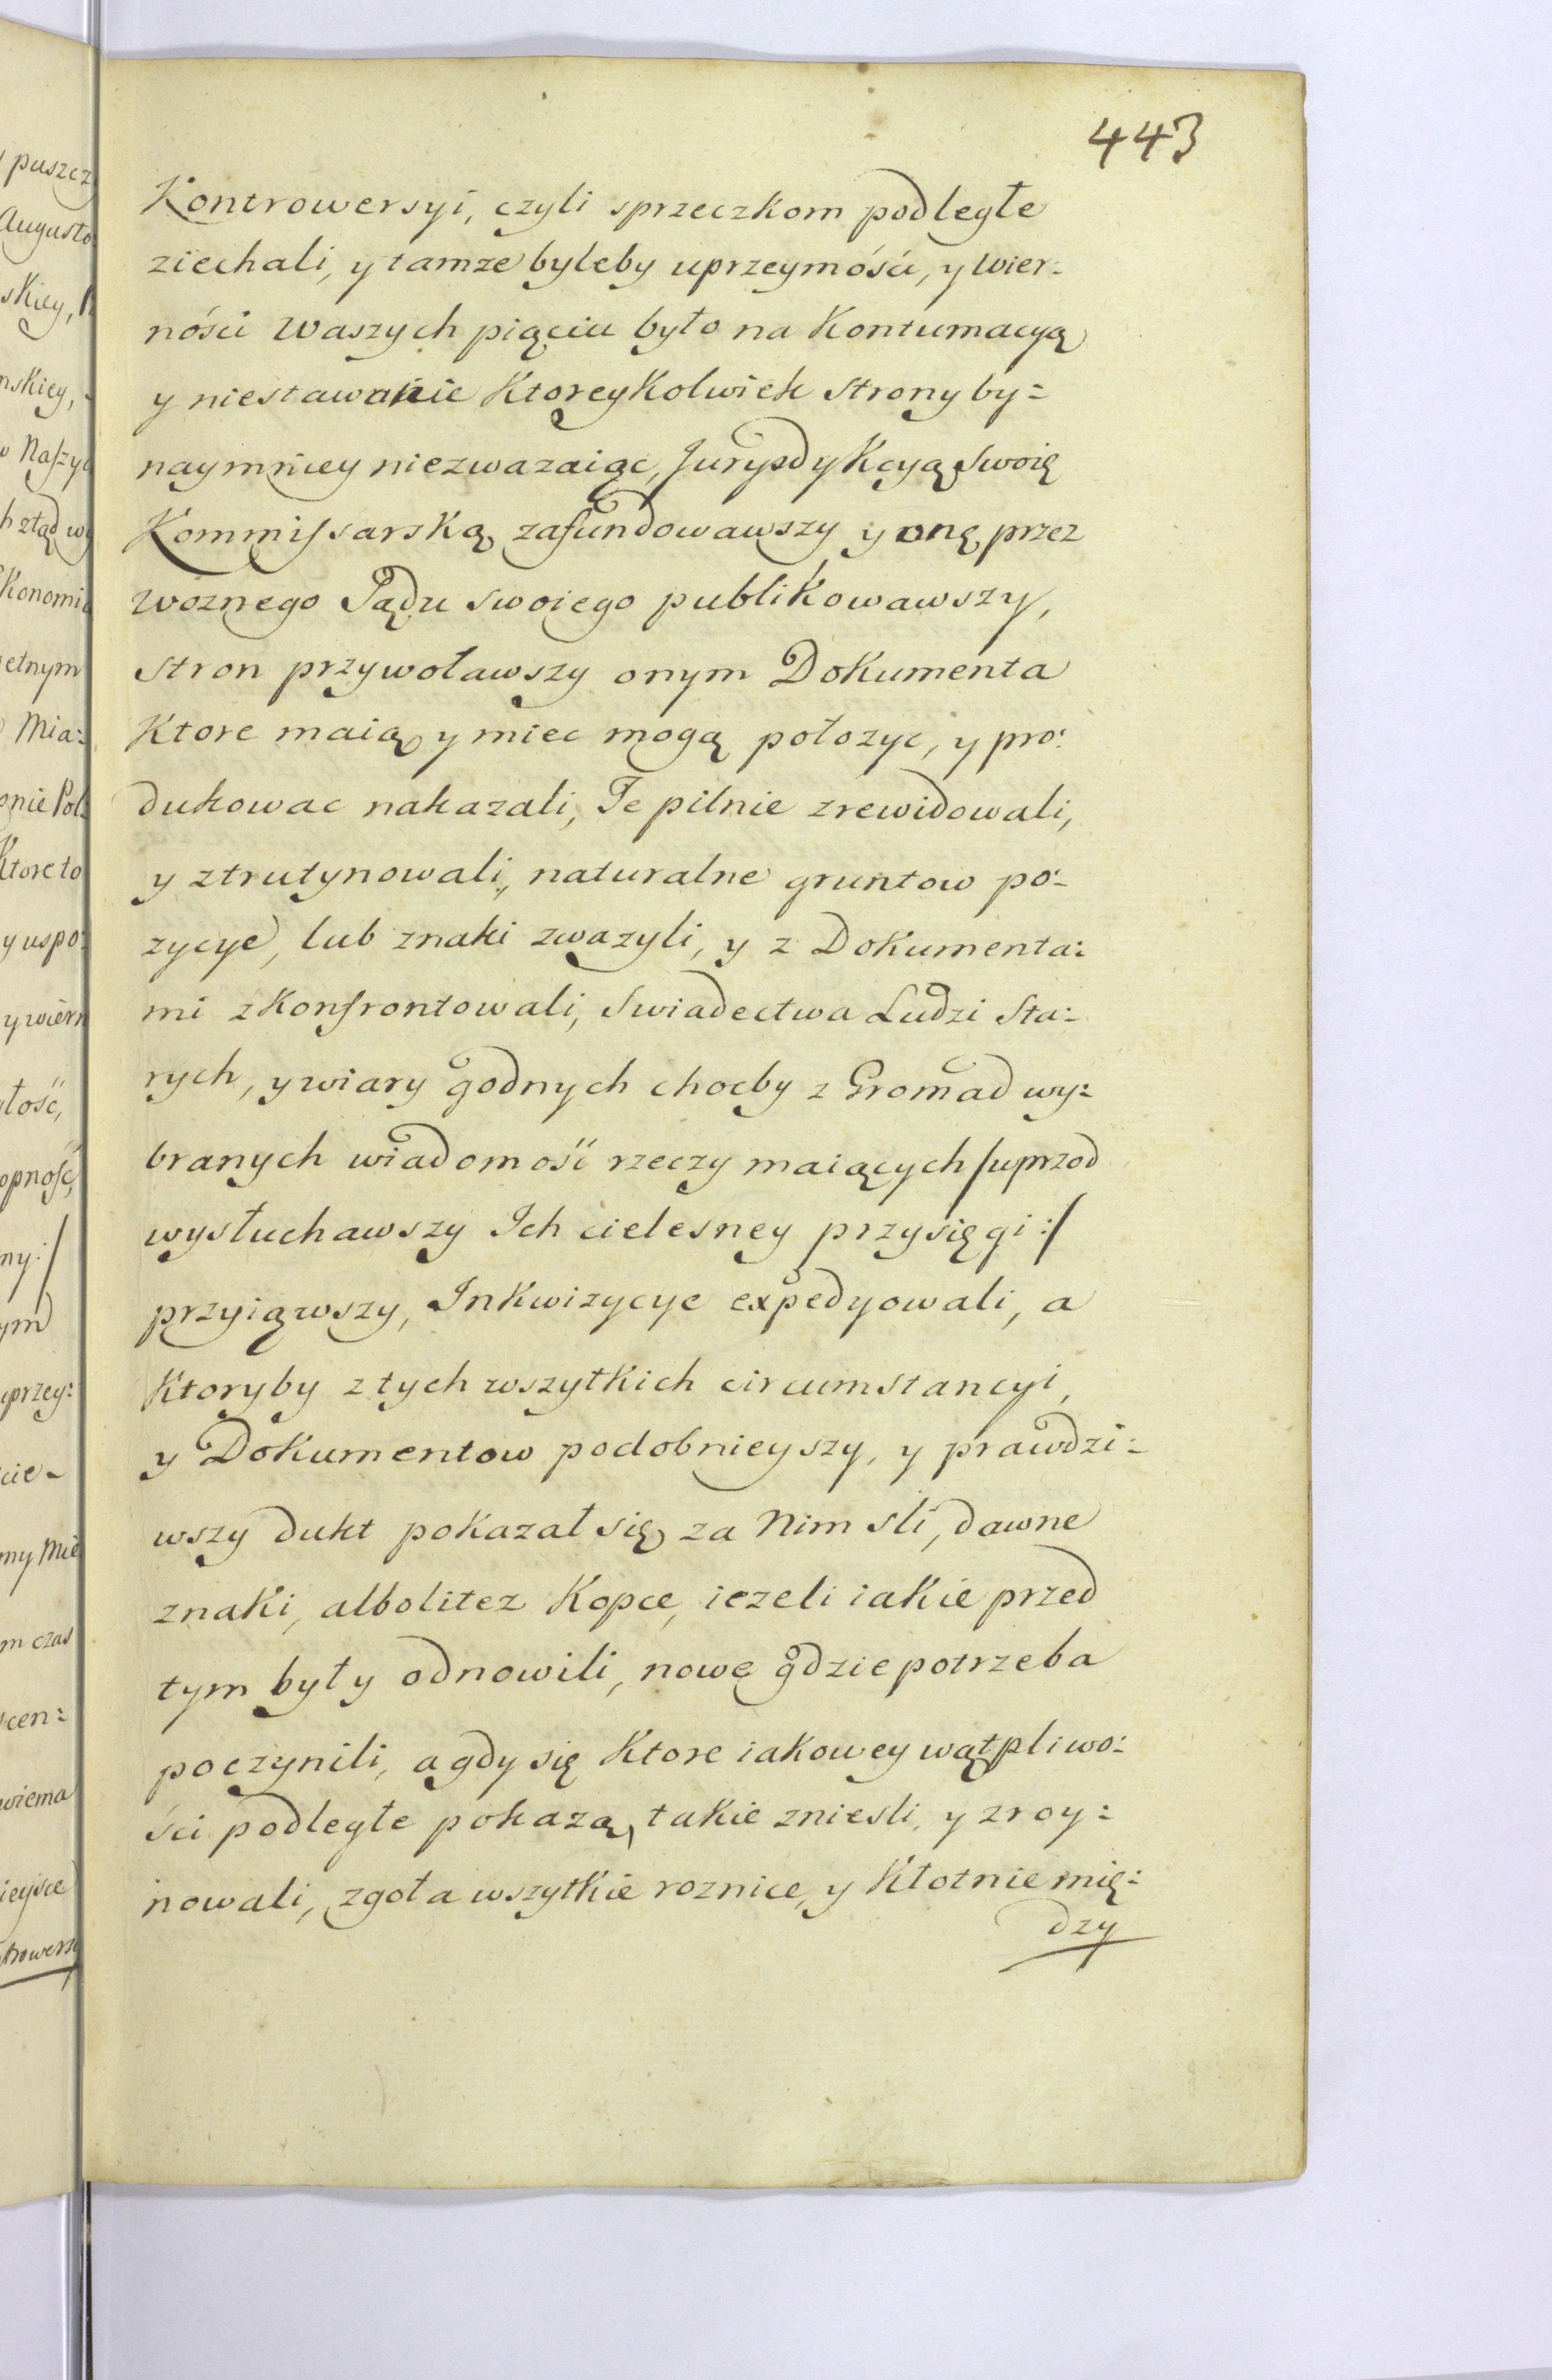 443
Kontrowersyi, czyli sprzeczkom podległe
ziechali, y tamze byleby uprzeymości, y Wier:
ności Waszych pięciu było na Kontumacyą
y niestawanie Ktoreykolwiek Strony by=
naymniey niezwazaiąc, Jurysdykcyą Swoię
Kommissarską zafundowawszy y onę przez
Woznego Sądu swoiego publikowawszy,
Stron przywoławszy onym Dokumenta
Ktore maią y miec mogą położyc, y pro:
dukowac nakazali, Te pilnie zrewidowali,
y ztrutynowali, naturalne gruntow po-
zycye, lub znaki zwazyli, y z Dokumenta:
mi zkonfrontowali, Swiadectwa Ludzi Sta:
rych, y wiary godnych chocby z Gromad wy:
branych wiadomość rzeczy maiących /uprzod
wysłuchawszy Ich cielesney przysięgi:/
przyiąwszy, Inkwizycye expedyowali, a
Ktoryby z tych wszytkich circumstancyi,
y Dokumentow podobnieyszy, y prawdzi:
wszy dukt pokazał się za Nim śli, dawne
znaki, albolitez Kopce, iezeli iakie przed
tym były odnowili, nowe gdzie potrzeba
poczynili, a gdy się Ktore iakowey wątpliwo:
ści podległe pokazą, takie zniesli, y zroy:
nowali, zgoła wszytkie roznice, y Kłotnie mię:
dzy
puszcz
Augusto
skiey,
nskiey,
Naszy
ztąd
Konomi
etnym
Mia:
onie Pol:
Ktore to
y uspo:
y wiern
łość,
opność,
ny:/
ym
uprzey:
cie-
my Mie
m czas
cen:
wiema
ieysce
trowersy